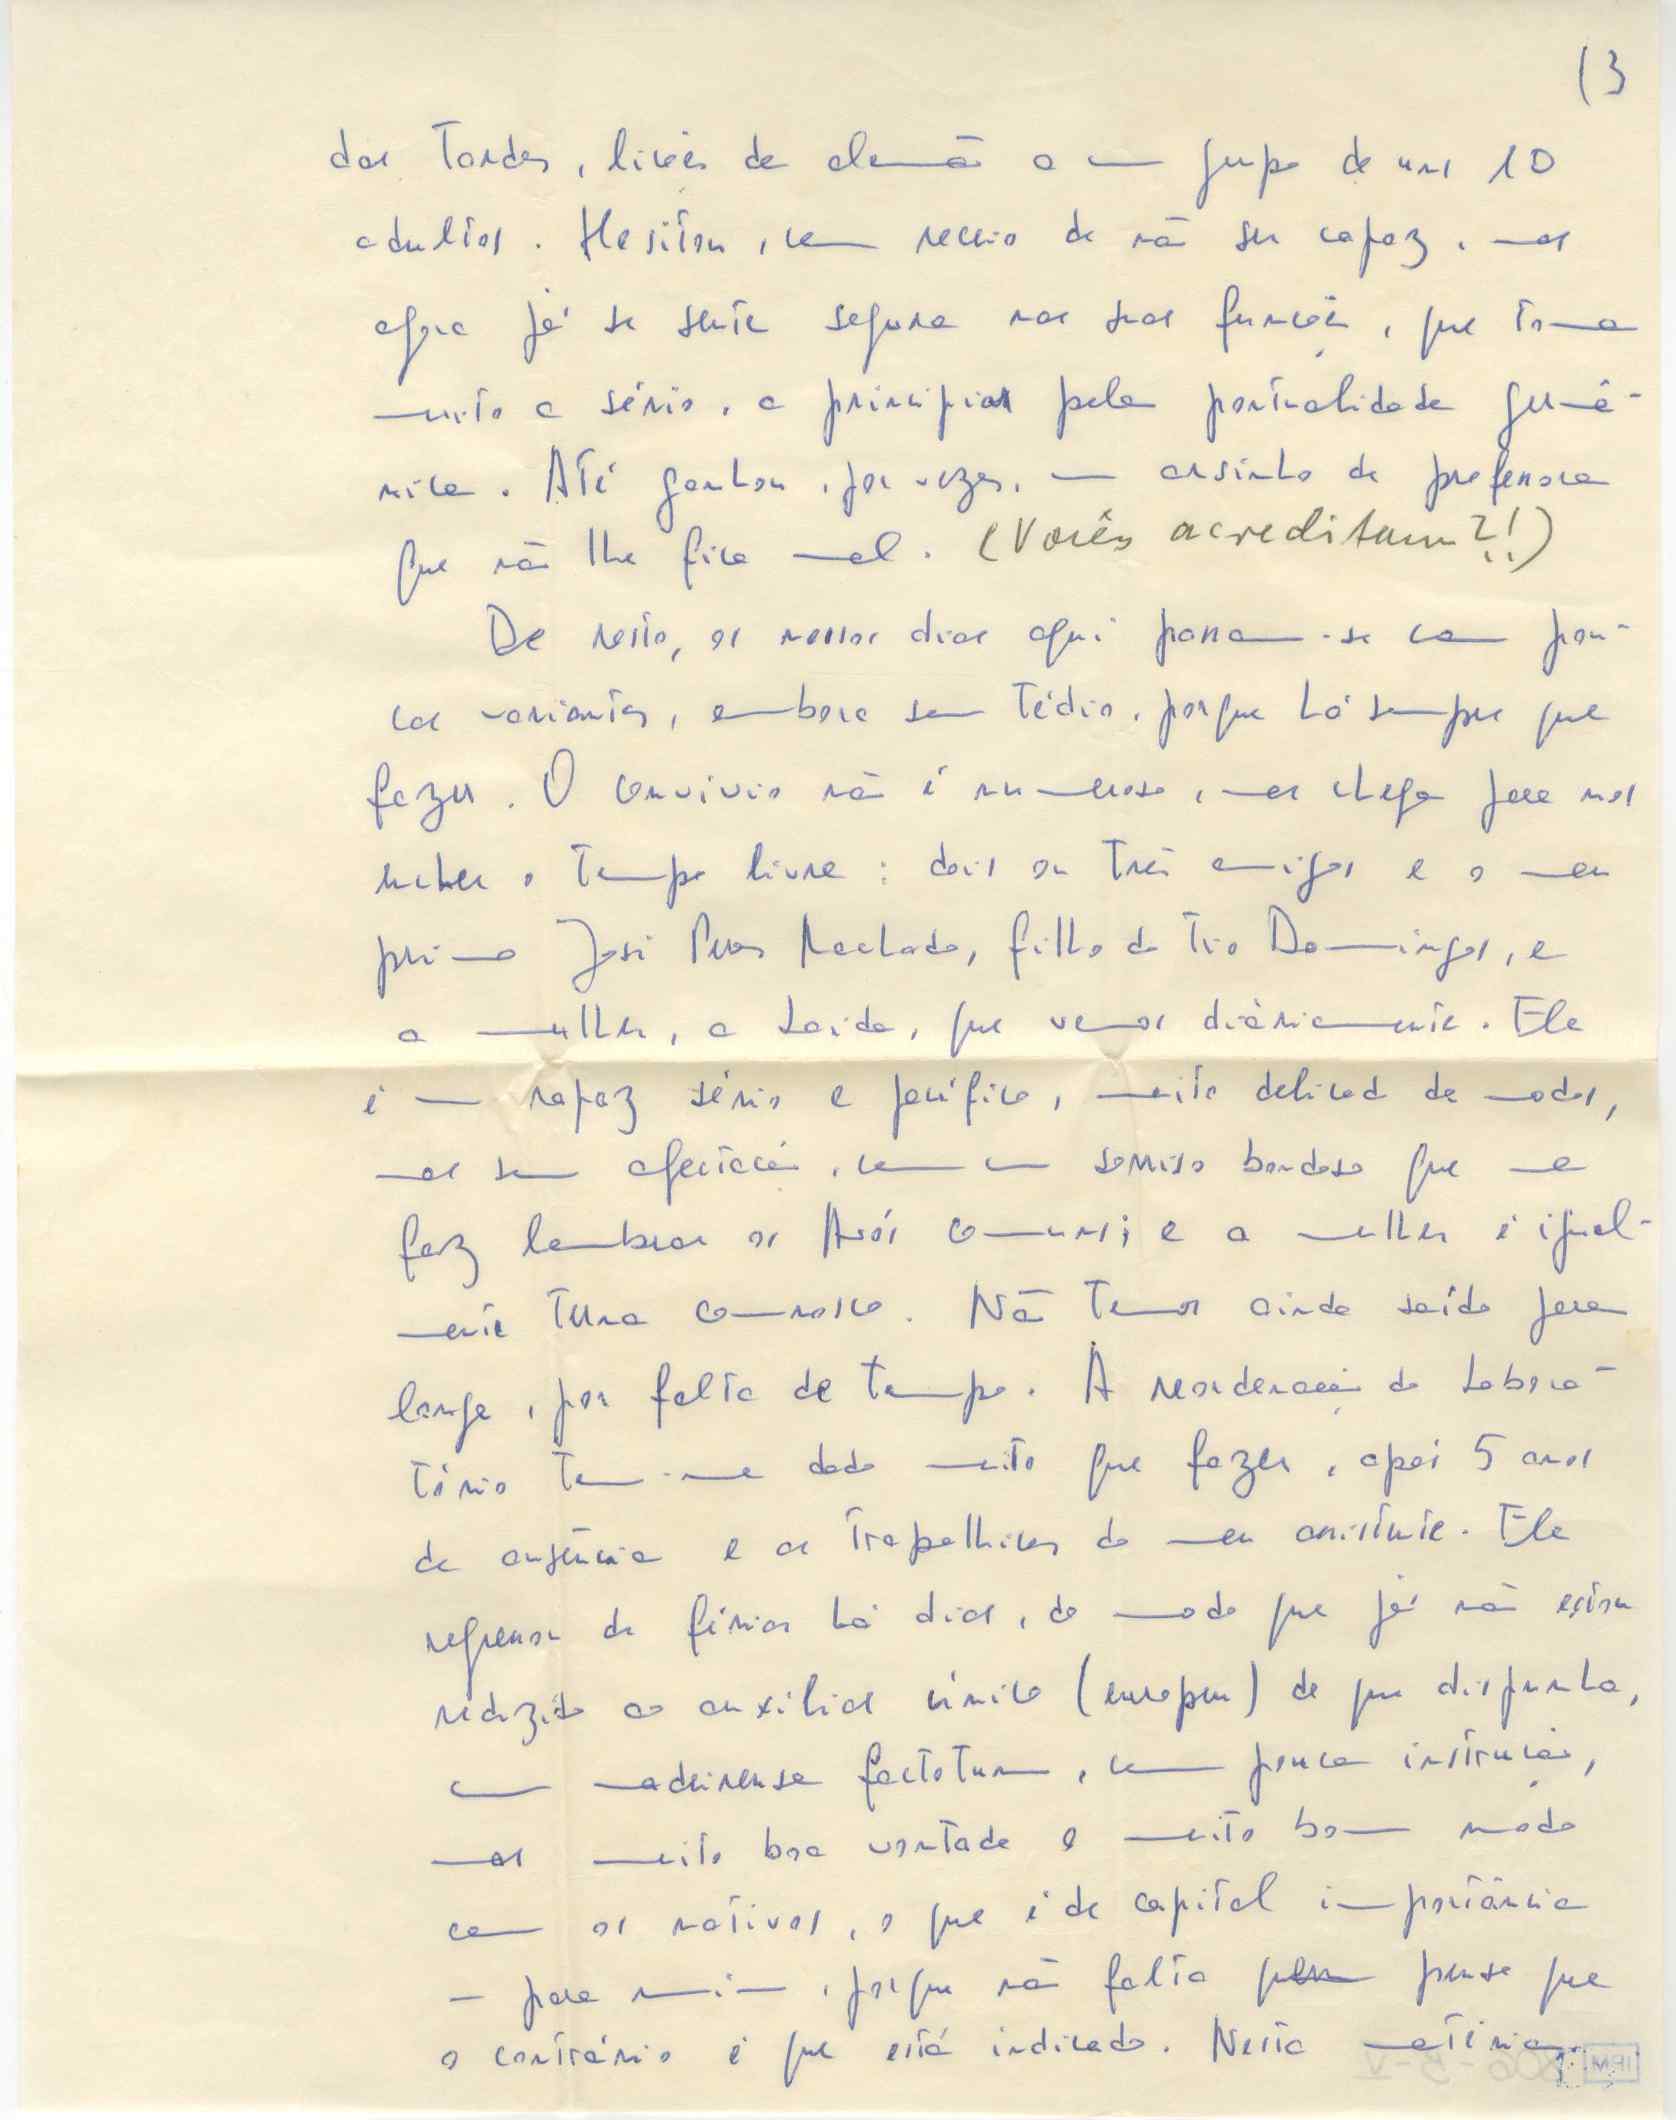 (3
das tardes, lições de alemão a um grupo de uns 10
adultos. Hesitou, com receio de não ser capaz, mas
agora já se sente segura nas suas funções, que toma
muito a sério, a principiar pela pontualidade germâ-
nica. Até ganhou, por vezes, um arzinho de professora
que não lhe fica mal. (Vocês acreditam?!)
De resto, os nossos dias aqui passam-se com pou-
cas variantes, embora sem tédio, porque há sempre que
fazer. O convívio não é numeroso, mas chega para nos
encher o tempo livre: dois ou três amigos e o meu
primo José Peres Machado, filho do Tio Domingos, e
a mulher, a Saida, que vemos diàriamente. Ele
é um rapaz sério e pacífico, muito delicado de modos,
mas sem afectação, com um sorriso bondoso que me
faz lembrar os Avós comuns; e a mulher é igual-
mente terna connosco. Não temos ainda saído para
longe, por falta de tempo. A reordenação do Labora-
tório tem-me dado muito que fazer, após 5 anos
de ausência e as trapalhices do meu assistente. Ele
regressou de férias há dias, de modo que já não estou
reduzido ao auxiliar único (europeu) de que dispunha,
um madeirense factotum, com pouca instrução,
mas muito boa vontade e muito bom modo
com os nativos, o que é de capital importância
— para mim, porque não falta quem pense que
o contrário é que está indicado. Nesta matéria,